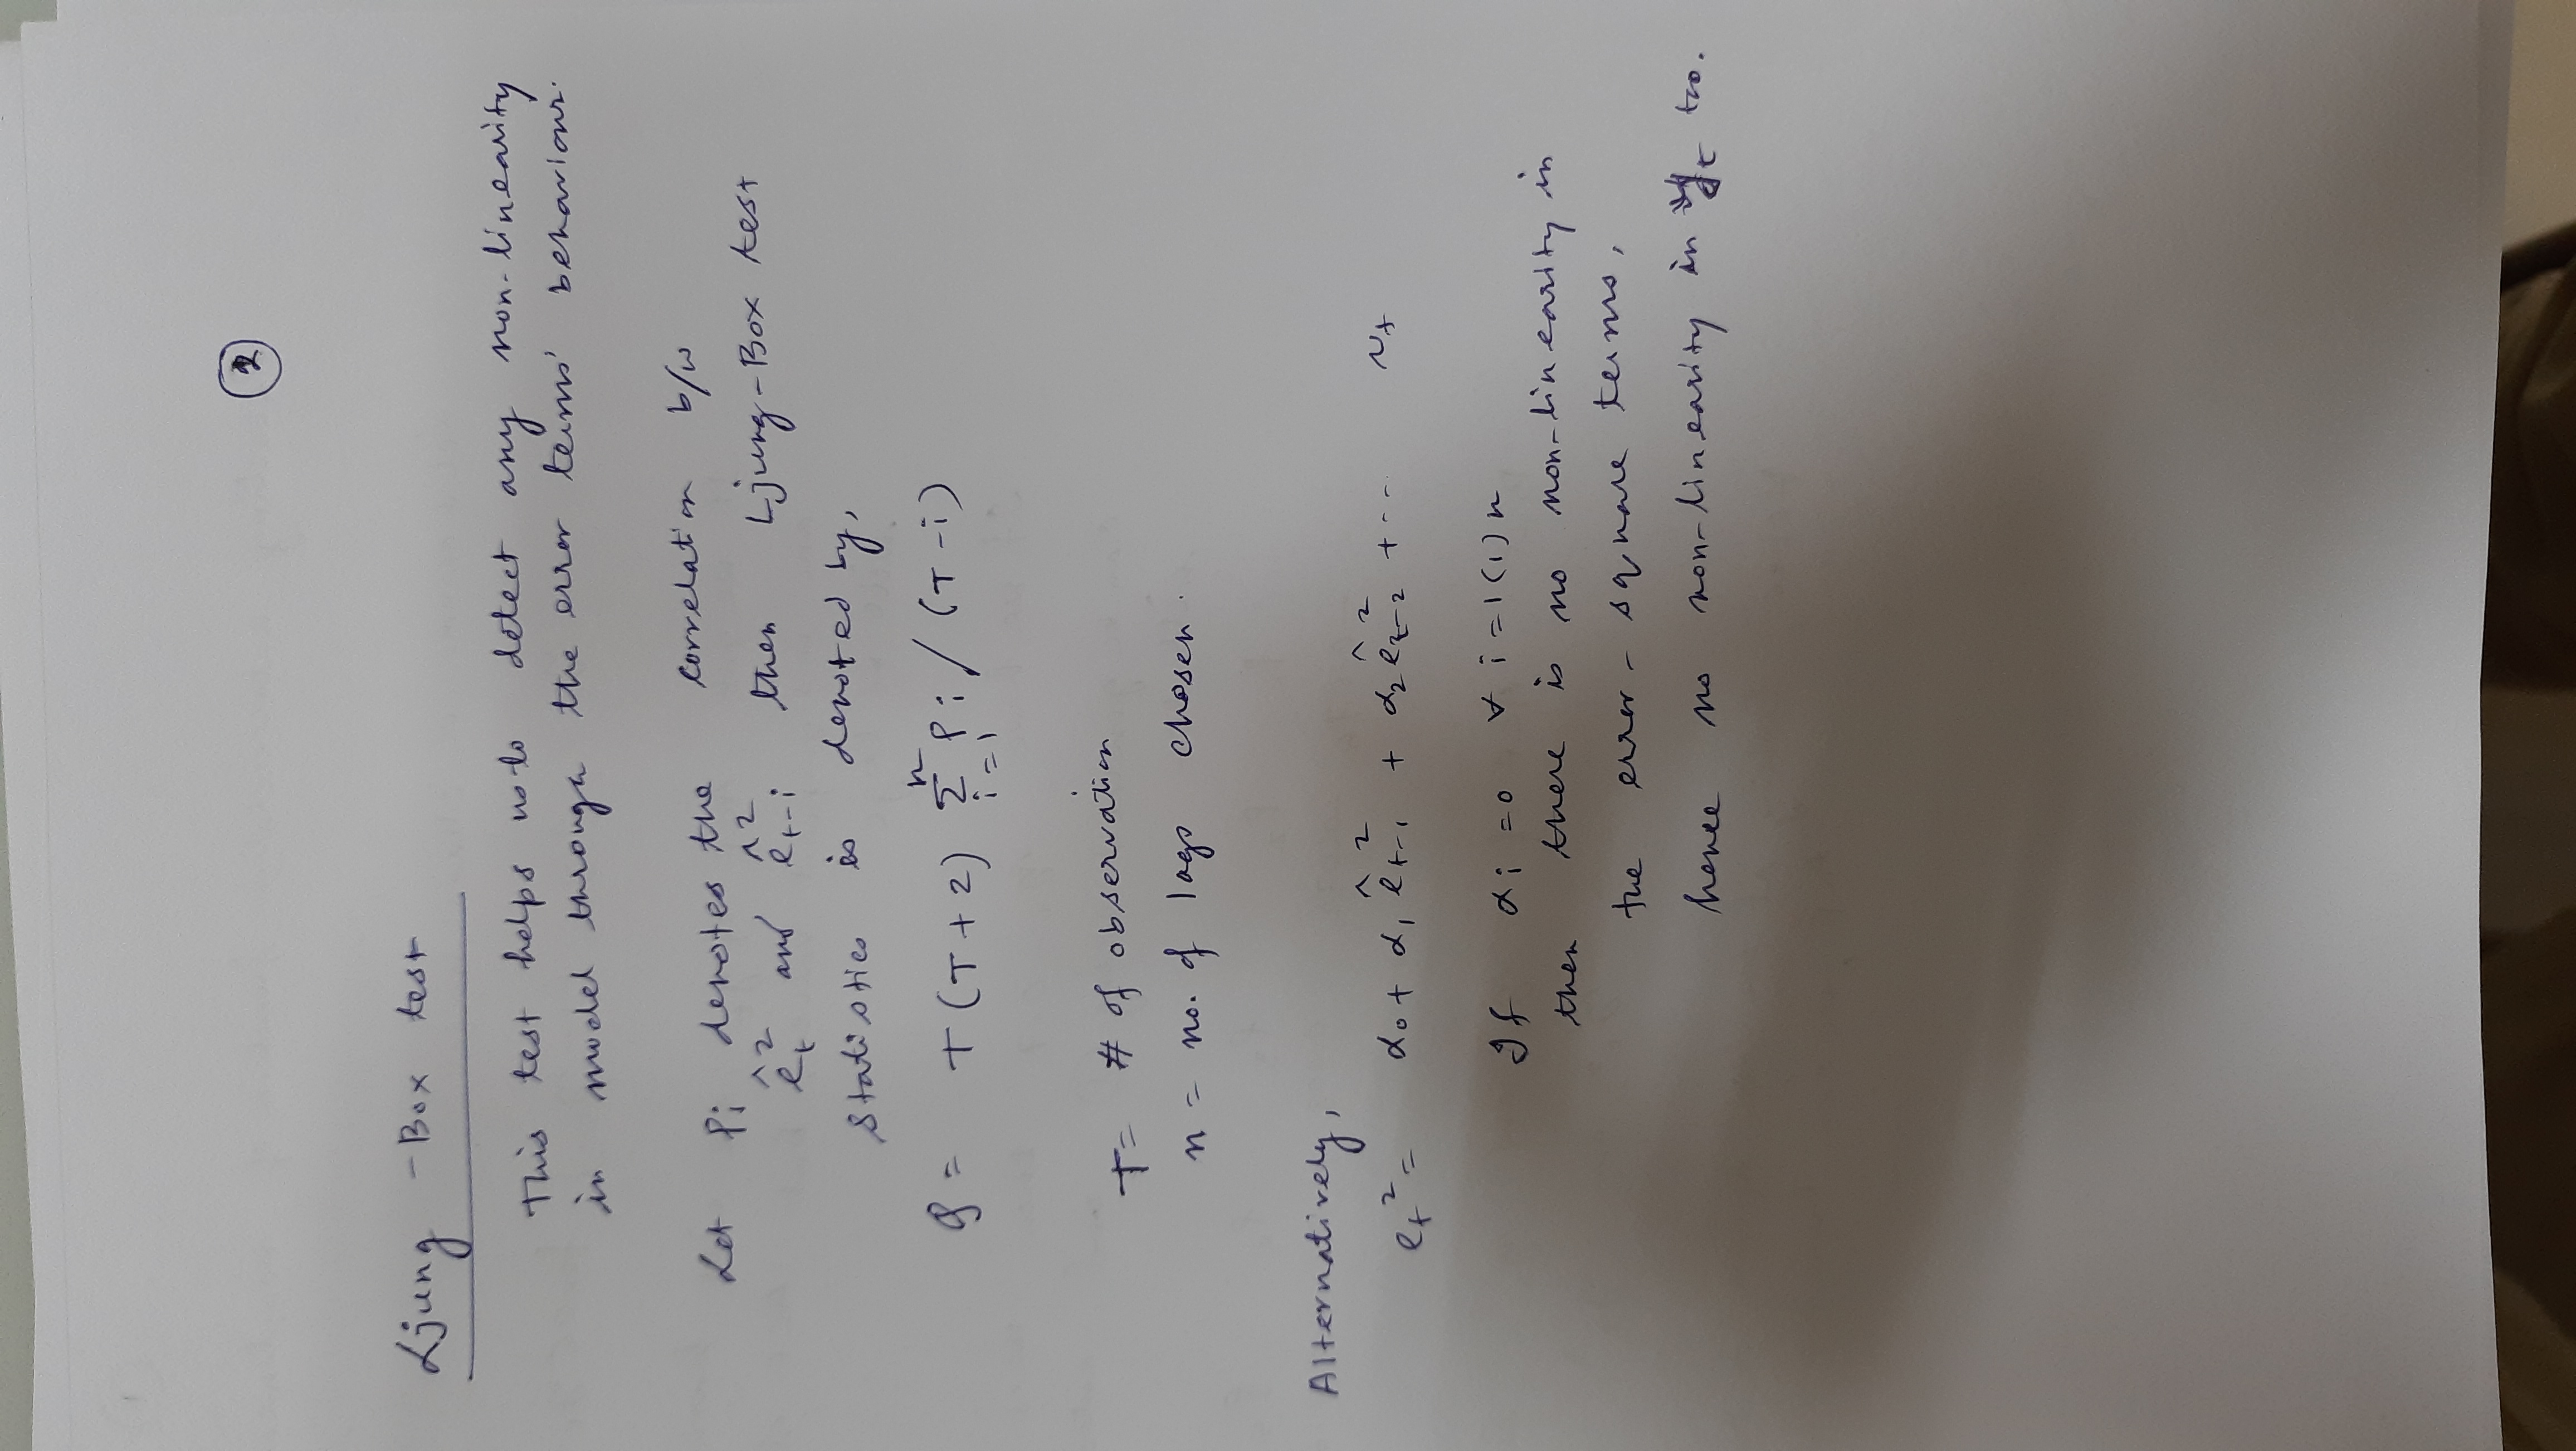 2
Ljung - Box test
This test helps us to detect any non-linearity
in model through the error terms' behaviour.
Let ρi denotes the correlation b/w
ê²t and ê²t-i then Ljung-Box test
statistics is denoted by,
Q = T(T+2) Σⁿi=1 ρi / (T-i)
T = # of observation
n = no. of lags chosen.
Alternatively,
et² = α0 + α1 ê²t-1 + α2 ê²t-2 + --- vt
If αi = 0 ∀ i = 1(1)n
then there is no non-linearity in
the error - square terms,
hence no non-linearity in yt too.